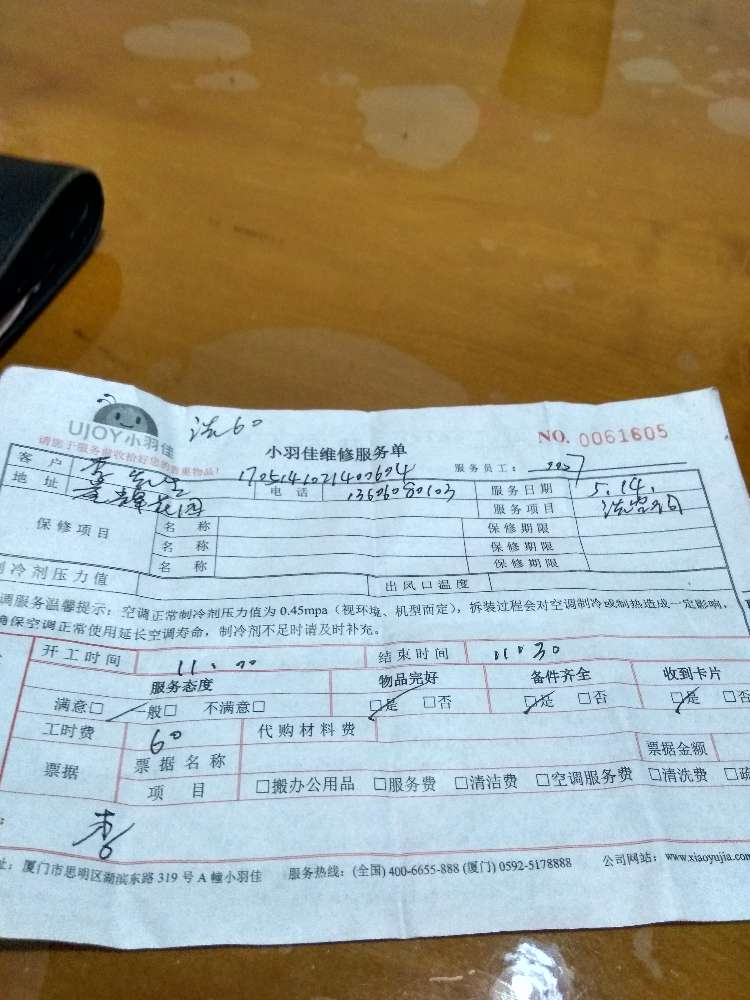 UJOY小羽佳 洗60
小羽佳维修服务单 NO. 0061605
请您于服务前收拾好您的贵重物品!
客户 李先生 1705141021400604 服务员工:
地址 电话 13606080103 服务日期 5.14.
保修项目 名称 保修期限 服务项目
名称 保修期限
名称 保修期限
制冷剂压力值 出风口温度
调服务温馨提示:空调正常制冷剂压力值为0.45mpa(视环境、机型而定),拆装过程会对空调制冷或制热造成一定影响,
确保空调正常使用延长空调寿命,制冷剂不足时请及时补充。
开工时间 11:00 结束时间 11:30
服务态度 物品完好 备件齐全 收到卡片
满意□ 一般□ 不满意□ □是 □否 □是 □否 □是 □否
工时费 60 代购材料费
票据 票据名称 票据金额
项目 □搬办公用品 □服务费 □清洁费 □空调服务费 □清洗费 □疏
李
址:厦门市思明区湖滨东路319号A幢小羽佳 服务热线:(全国)400-6655-888 (厦门)0592-5178888 公司网站:www.xiaoyujia.com